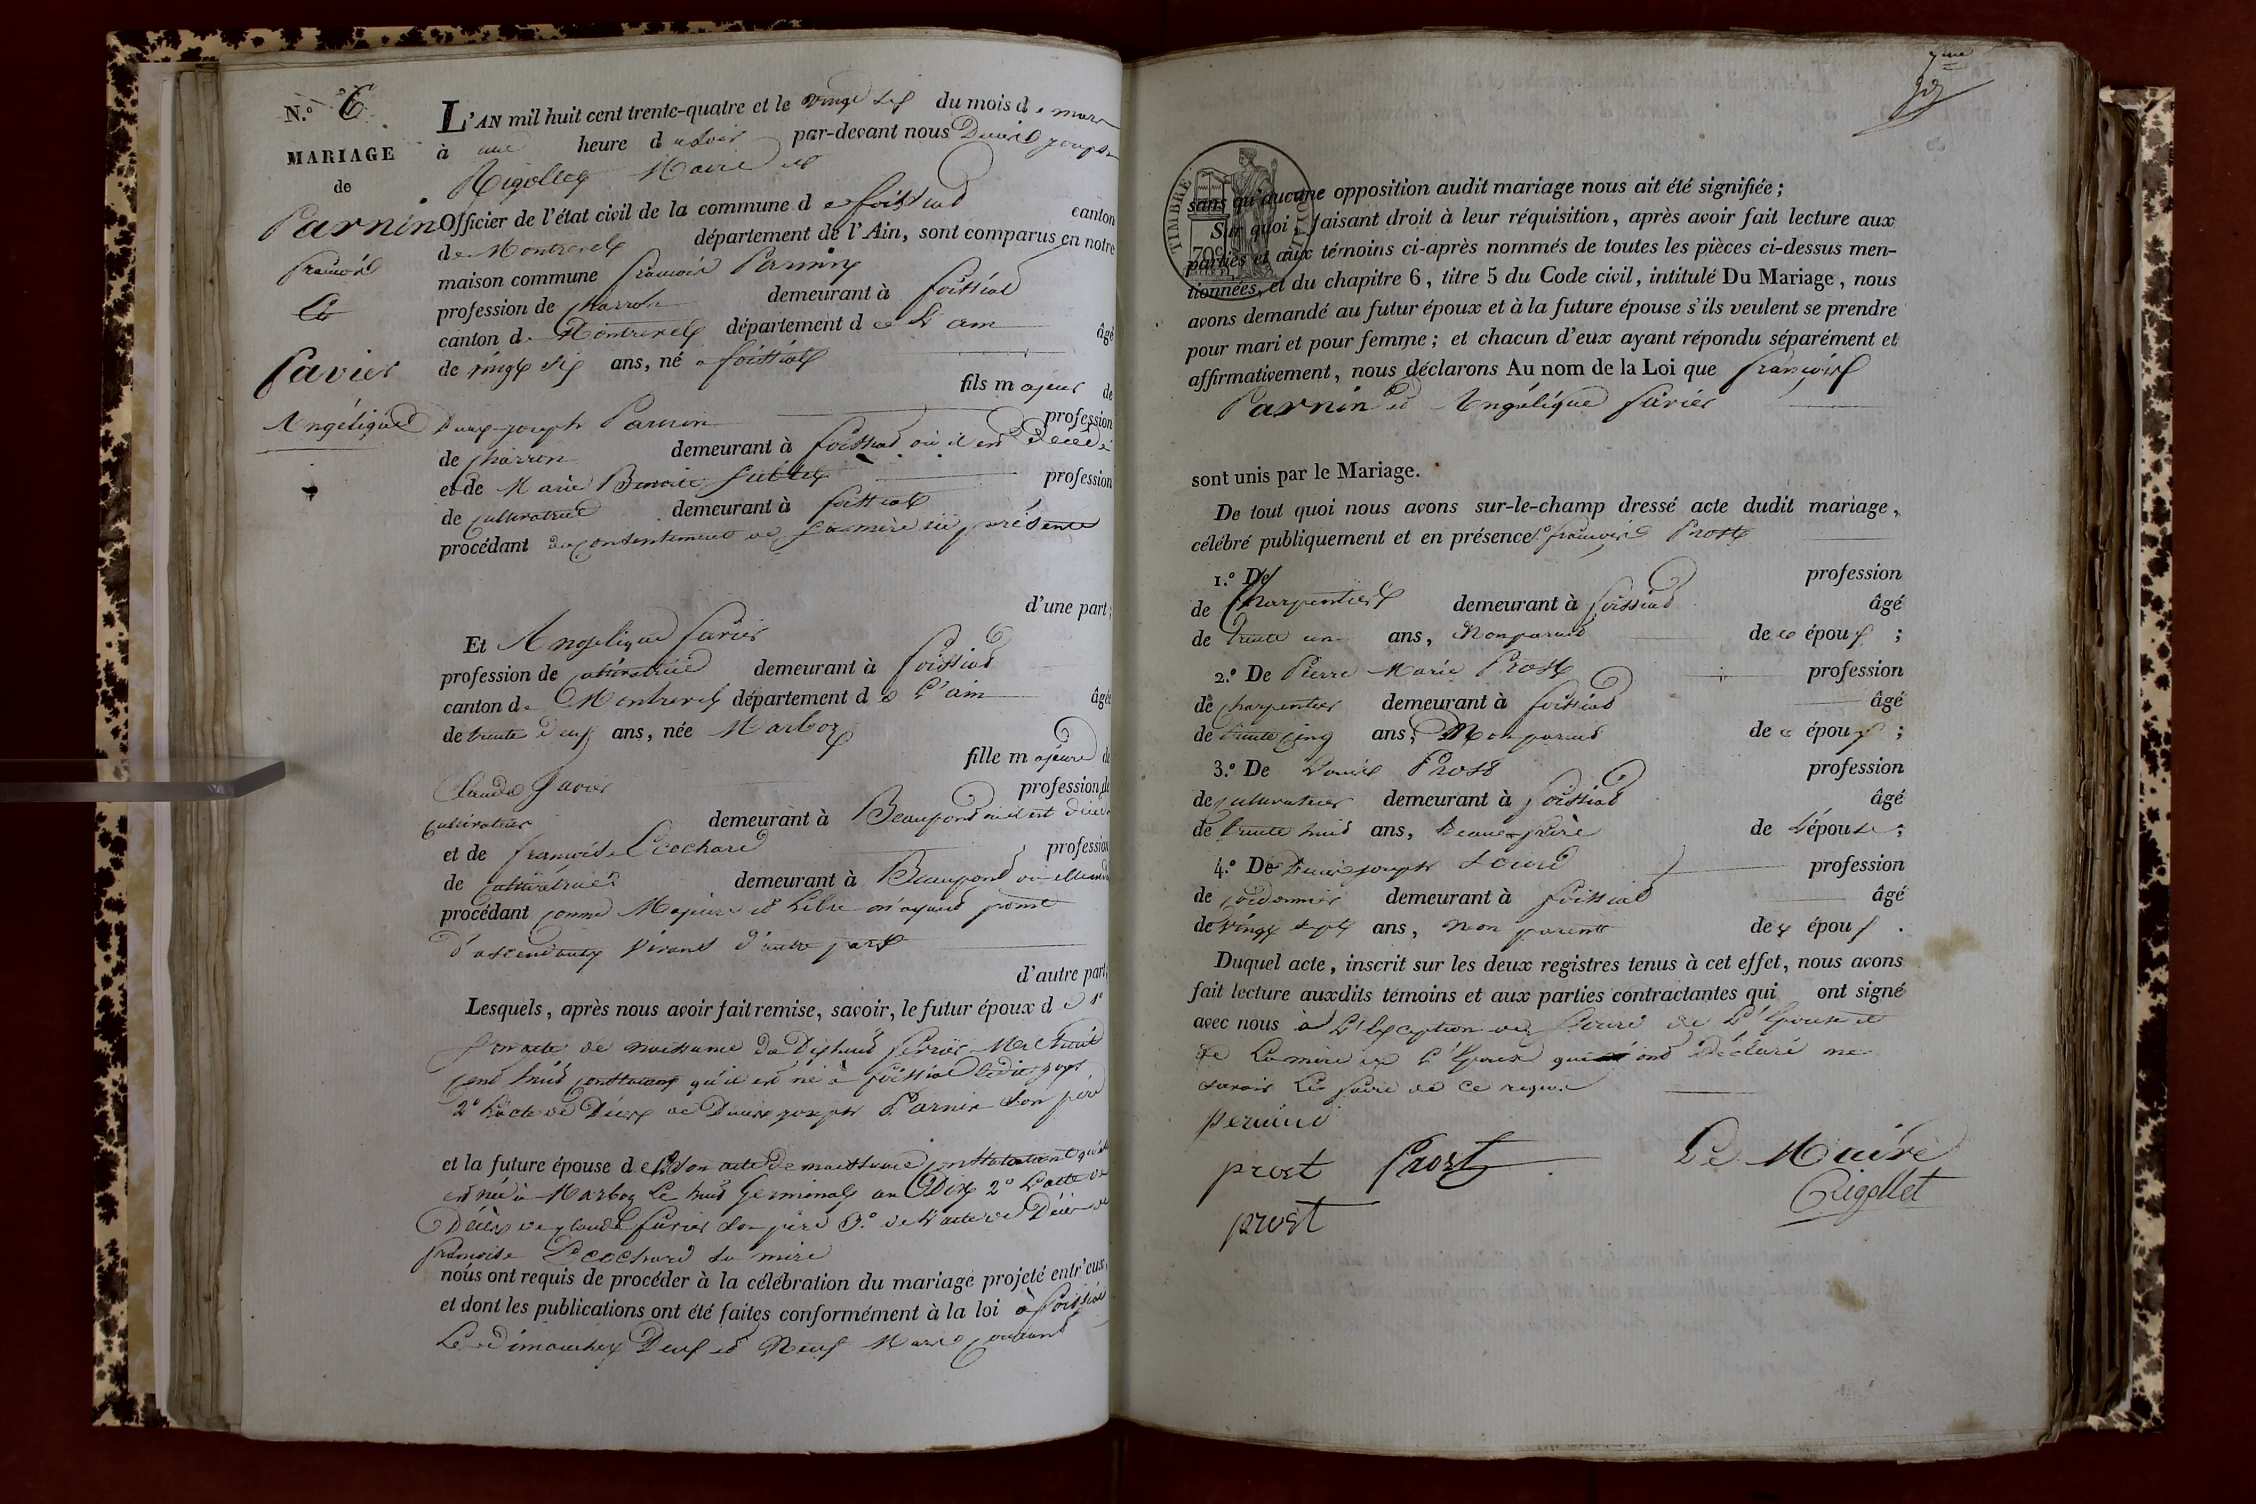 N.º 6
MARIAGE
de
Parnin
françois
Et
Favier
Angélique
L'AN mil huit cent trente-quatre et le vingt six du mois de mars
à une heure du soir par-devant nous Denis joseph
Rigollet Maire et
Officier de l'état civil de la commune de foissiat canton
de Montrevel département de l'Ain, sont comparus en notre
maison commune françois Parnin
profession de charron demeurant à foissiat
canton de Montrevel département de L'ain âgé
de vingt six ans, né a foissiat
fils majeur de
Denis joseph Parnin profession
de charron demeurant à foissiat où il est décédé
et de Marie Benoite profession
de cultivatrice demeurant à foissiat
procédant du consentement de sa mère ici présente
d'une part;
Et Angelique favier
profession de cultivatrice demeurant à foissiat
canton de Montrevel département de L'ain âgée
de trente deux ans, née Marboz
fille majeure de
Claude favier profession de
cultivateur demeurant à Beaupont où il est décédé
et de françoise Cochard profession
de cultivatrice demeurant à Beaupont où elle est
procédant comme Majeure et Libre n'ayant point
d'ascendants vivants d'autre part
d'autre part;
Lesquels, après nous avoir fait remise, savoir, le futur époux de 1º
son acte de naissance du Dixhuit fevrier Mil huit
cent huit constatant qu'il est né à foissiat ledit jour
2º L'acte de Décès de Denis joseph Parnin son père
et la future épouse de 1º son acte de naissance constatant qu'elle
est née à Marboz Le huit Germinal an Dix 2º L'acte de
Décès de claude favier son père 3.º de L'acte de Décès de
françoise Cochard sa mère
nous ont requis de procéder à la célébration du mariage projeté entr'eux,
et dont les publications ont été faites conformément à la loi à foissiat
Les Dimanches Deux et Neuf Mars courant
7me
TIMBRE
ROYAL
70c
sans qu'aucune opposition audit mariage nous ait été signifiée;
Sur quoi, faisant droit à leur réquisition, après avoir fait lecture aux
parties et aux témoins ci-après nommés de toutes les pièces ci-dessus men-
tionnées, et du chapitre 6, titre 5 du Code civil, intitulé Du Mariage, nous
avons demandé au futur époux et à la future épouse s'ils veulent se prendre
pour mari et pour femme; et chacun d'eux ayant répondu séparément et
affirmativement, nous déclarons Au nom de la Loi que françois
Parnin et Angélique favier
sont unis par le Mariage.
De tout quoi nous avons sur-le-champ dressé acte dudit mariage,
célébré publiquement et en présence 1º françois Prost
1.º De profession
de Charpentier demeurant à foissiat âgé
de trente un ans, Non parent des époux;
2.º De Pierre Marie Prost profession
de charpentier demeurant à foissiat âgé
de trente cinq ans, Non parent des époux;
3.º De Louis Prost profession
de cultivateur demeurant à foissiat âgé
de trente huit ans, beau frère de L'épouse;
4.º De Denis joseph profession
de cordonnier demeurant à foissiat âgé
de vingt sept ans, non parent des époux.
Duquel acte, inscrit sur les deux registres tenus à cet effet, nous avons
fait lecture auxdits témoins et aux parties contractantes qui ont signé
avec nous à L'Exception de de L'Epouse et
de La mère de L'Epoux qui ont Déclaré ne
savoir Le faire de ce requis
prost Prost Le Maire
prost Rigollet